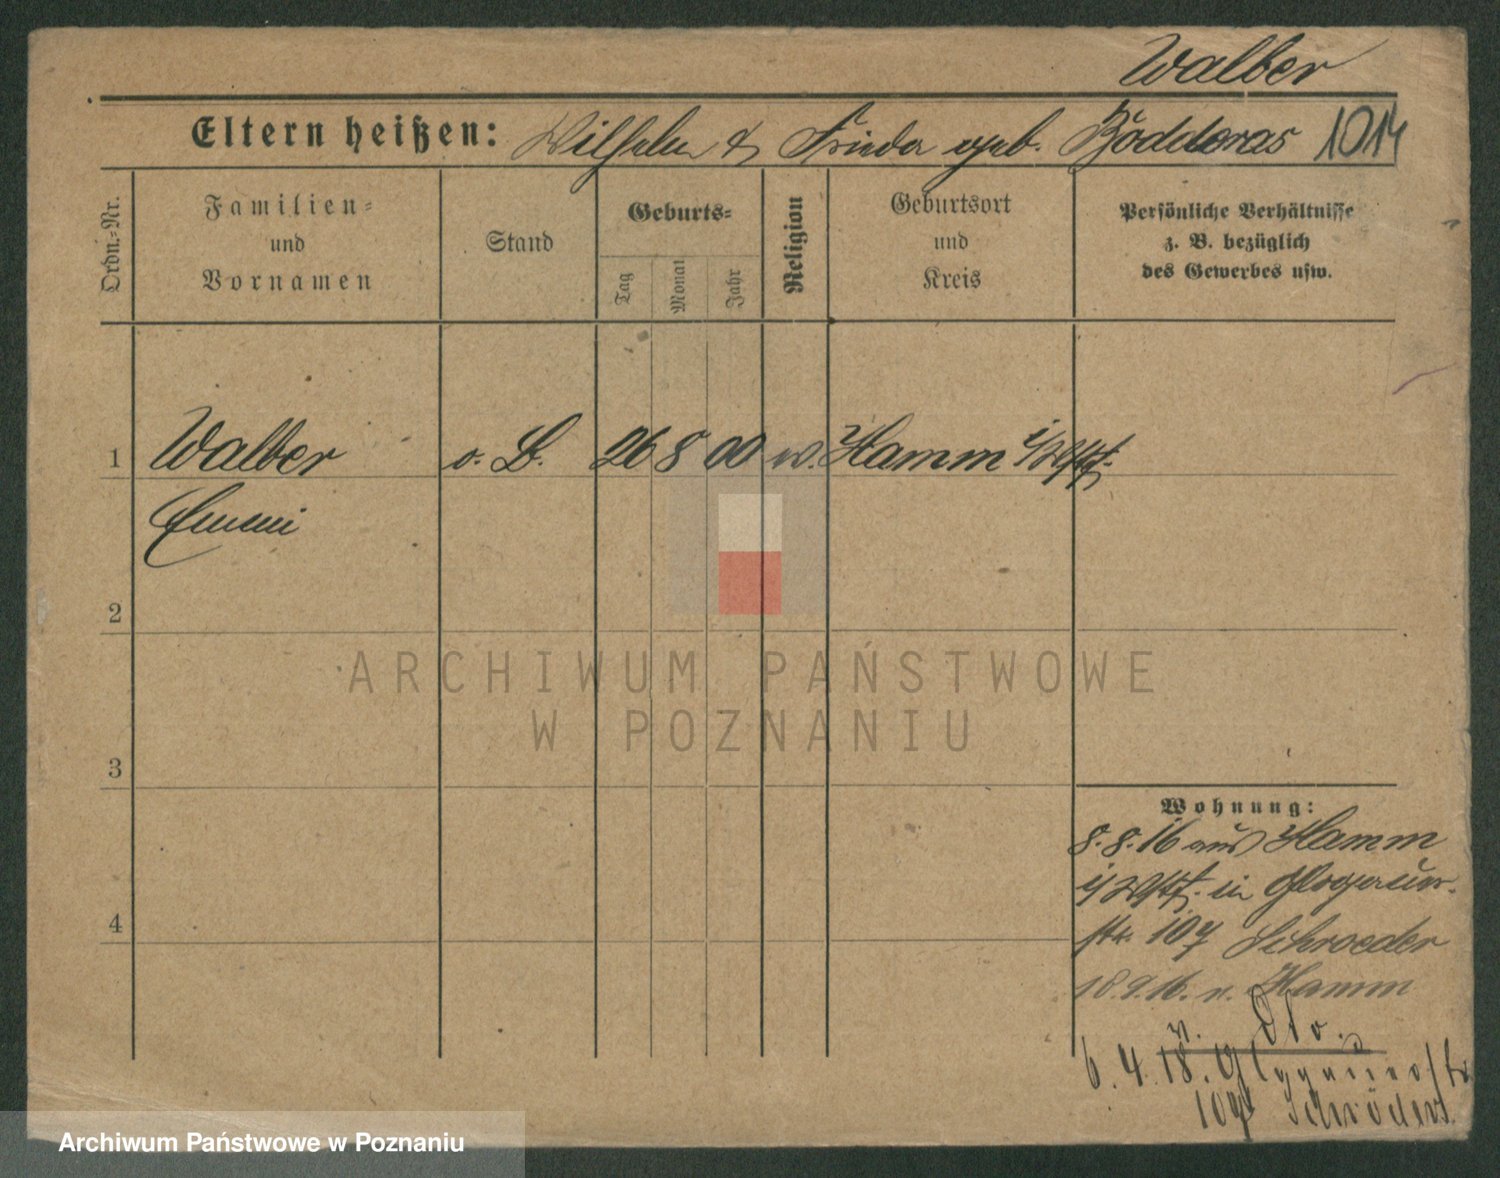 Walber
Eltern heißen: Wilhelm & Frieda geb. Bödderas 1014
Ordn.-Nr.
Familien-
und
Vornamen
Stand
Geburts-
Tag
Monat
Jahr
Religion
Geburtsort
und
Kreis
Persönliche Verhältnisse
z. B. bezüglich
des Gewerbes usw.
1 Walber o. B. 26 8 00 Hamm i/Wstf.
Emmi
2
3
4
Wohnung:
8.8.16 aus Hamm
i/Wstf. in Glogauer-
str. 107 Schroeder
18.9.16. n. Hamm
v. Dto.
6.4.18. Glogauerstr
107 Schröder
ARCHIWUM PAŃSTWOWE
W POZNANIU
Archiwum Państwowe w Poznaniu